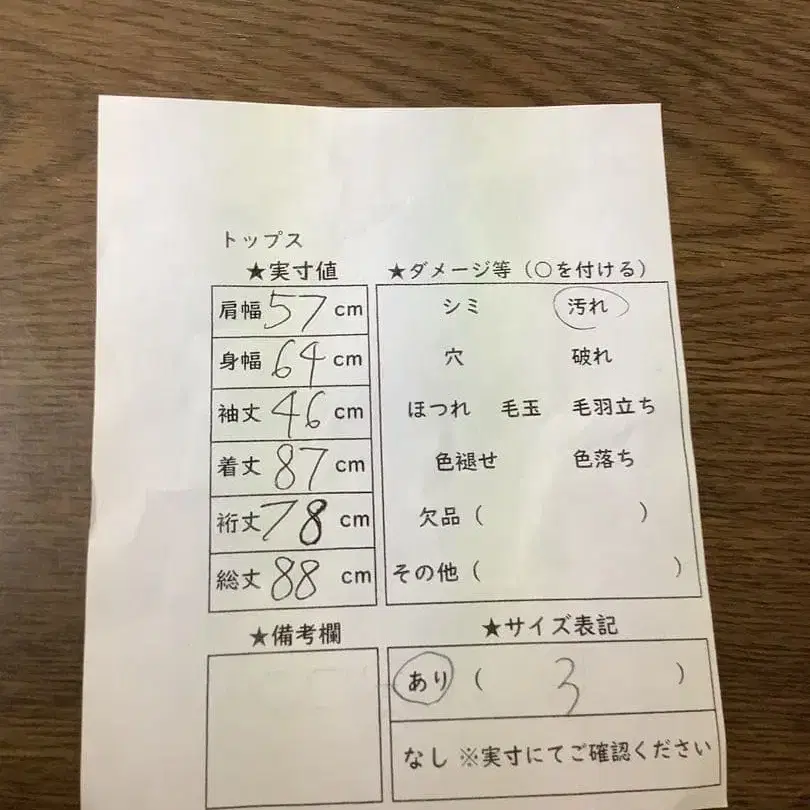 トップス
★実寸値
肩幅 57 cm
身幅 64 cm
袖丈 46 cm
着丈 87 cm
裄丈 78 cm
総丈 88 cm
★ダメージ等（○を付ける）
シミ 汚れ
穴 破れ
ほつれ 毛玉 毛羽立ち
色褪せ 色落ち
欠品（ ）
その他（ ）
★備考欄
★サイズ表記
あり（ 3 ）
なし ※実寸にてご確認ください